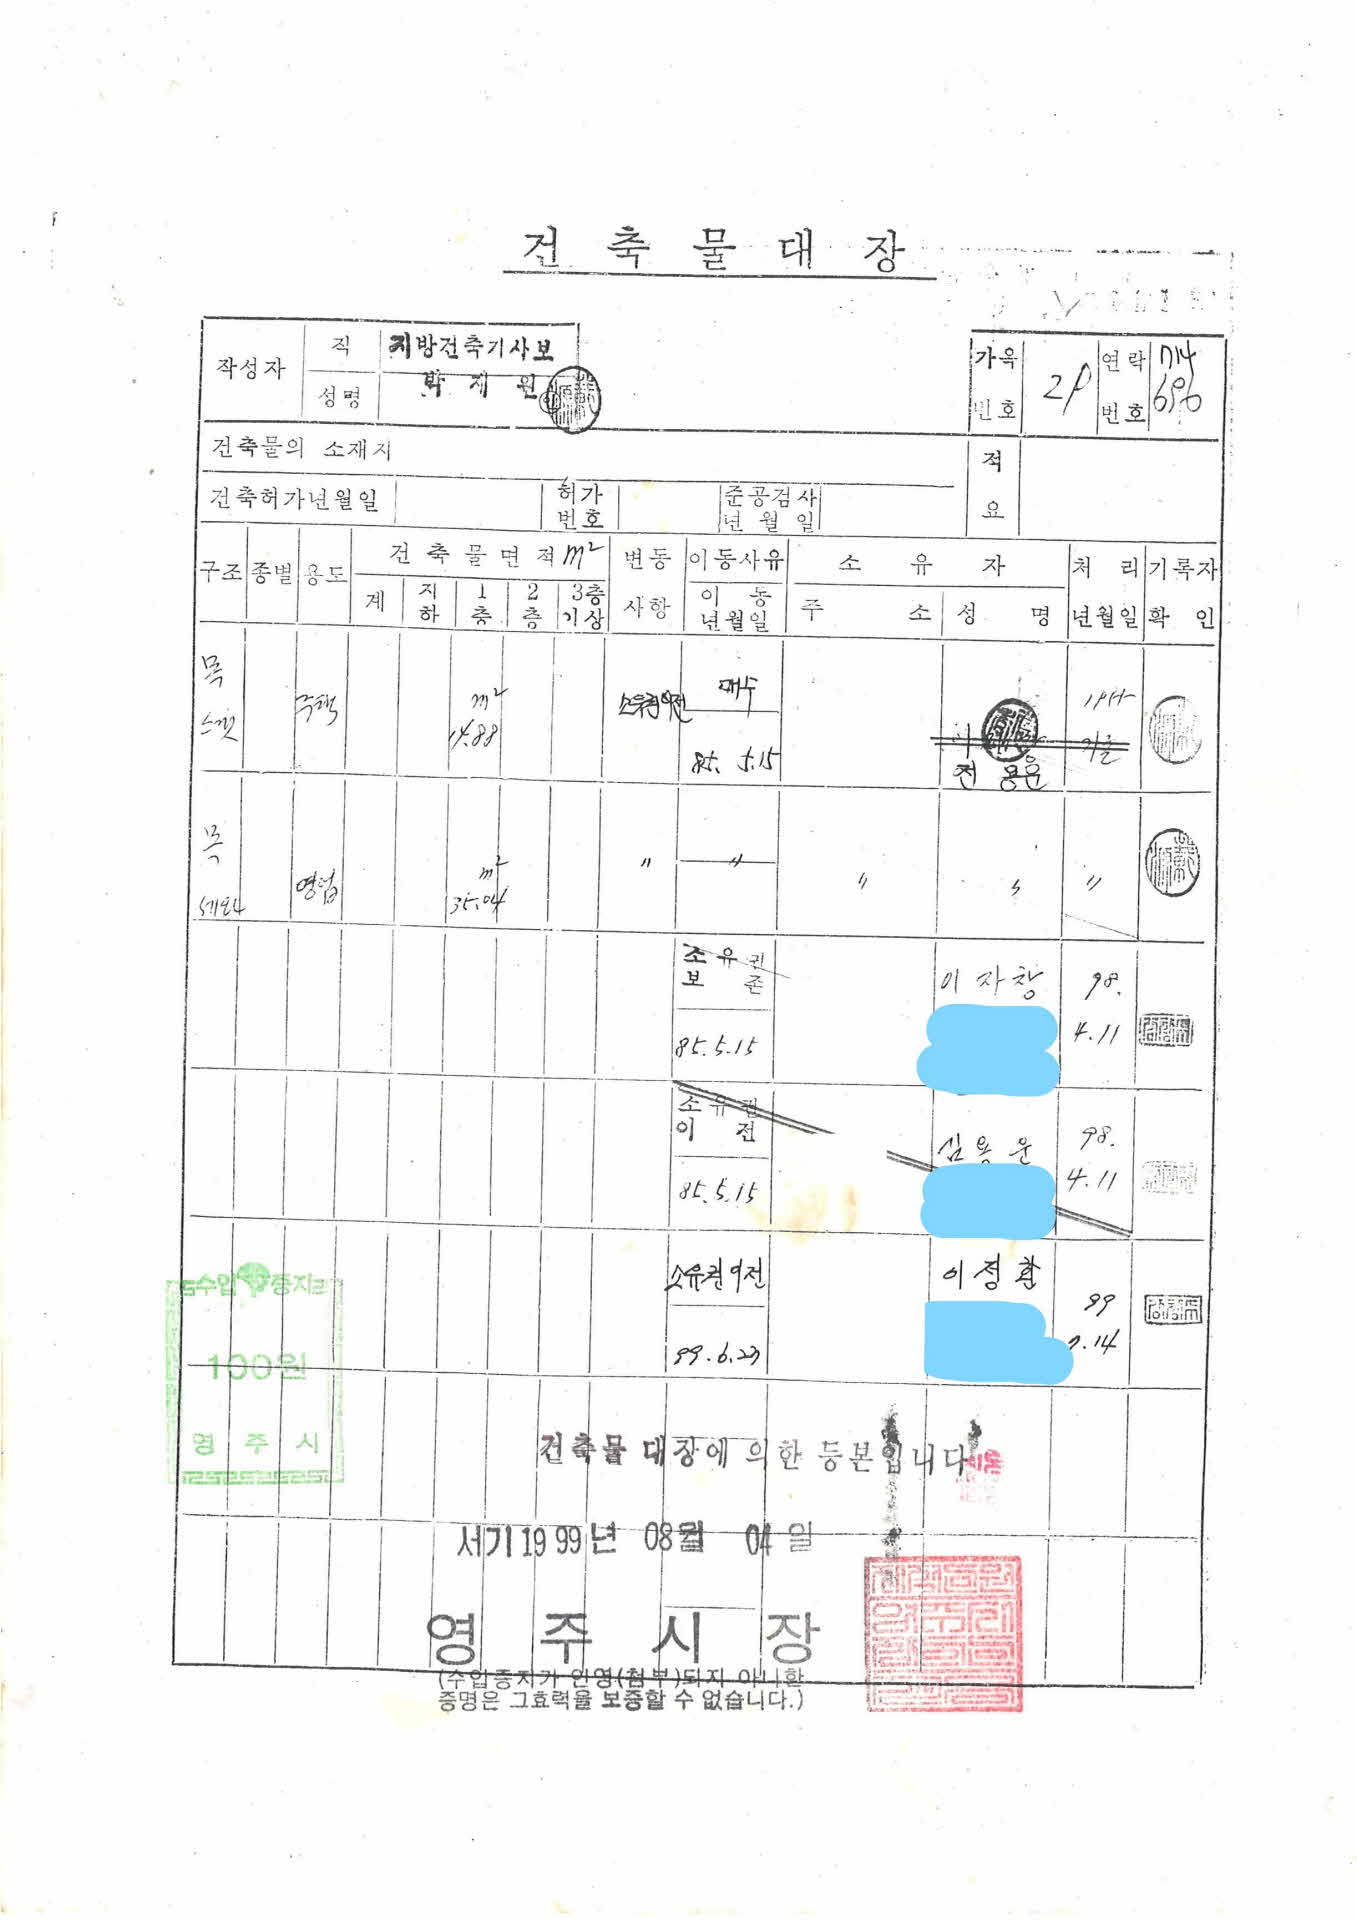 건축물대장
작성자 직 지방건축기사보
성명 박재원
가옥번호 29 연락번호 714 696
건축물의 소재지
적요
건축허가년월일 허가번호 준공검사년월일
구조 종별 용도 건축물면적 m² 변동사항 이동사유 소유자 처리년월일 기록자확인
계 지하 1층 2층 3층기상 이동년월일 주소 성명
목 주택 m² 14.88 소유권이전 매수
85. 5.15 전용운
목 영업 m² 35.04 〃 〃 〃 〃 〃
소유권보존 이자창 98.
85.5.15 4.11
소유권이전 심용운 98.
85.5.15 4.11
소유권이전 이정환 99
99.6.23 7.14
수입증지
100원
영주시
건축물대장에 의한 등본입니다
서기1999년 08월 04일
영주시장
(수입증지가 인영(첨부)되지 아니한
증명은 그효력을 보증할 수 없습니다.)